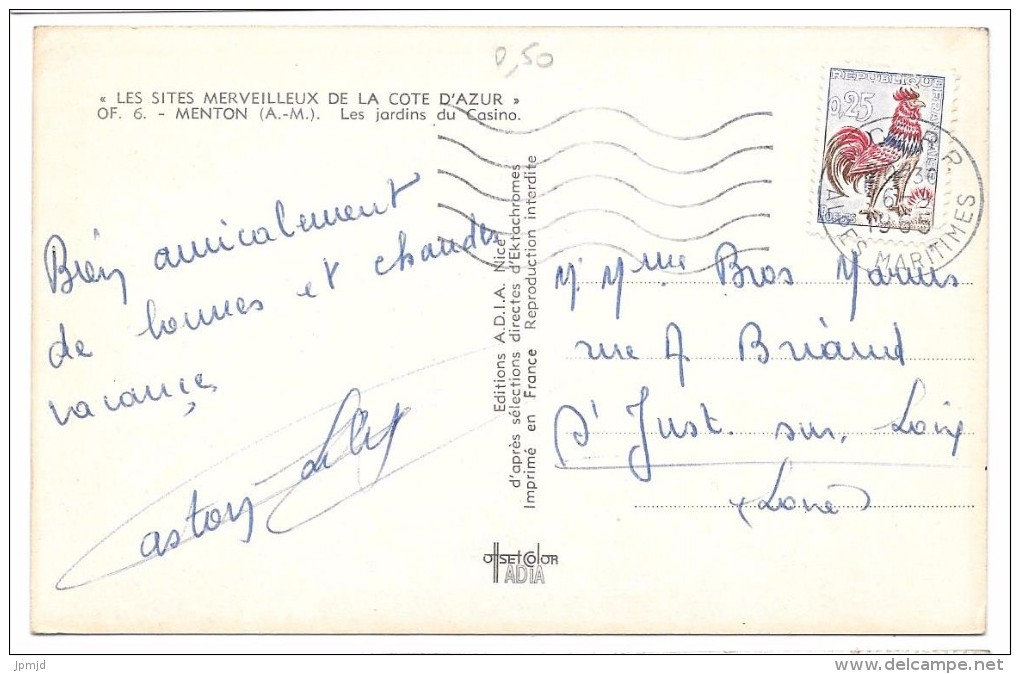 0,50
« LES SITES MERVEILLEUX DE LA COTE D'AZUR »
OF. 6. - MENTON (A.-M.). Les jardins du Casino.
REPUBLIQUE FRANÇAISE
0,25
POSTES
ALPES MARITIMES
Bien amicalement
de bonnes et chaudes
vacances
Gaston
Editions A.D.I.A. Nice
d'après sélections directes d'Ektachromes
Imprimé en France Reproduction interdite
M. Mme Bros Marius
rue A Briand
St Just. sur. Loire
(Loire)
OFFSETCOLOR
ADIA
jpmjd
www.delcampe.net